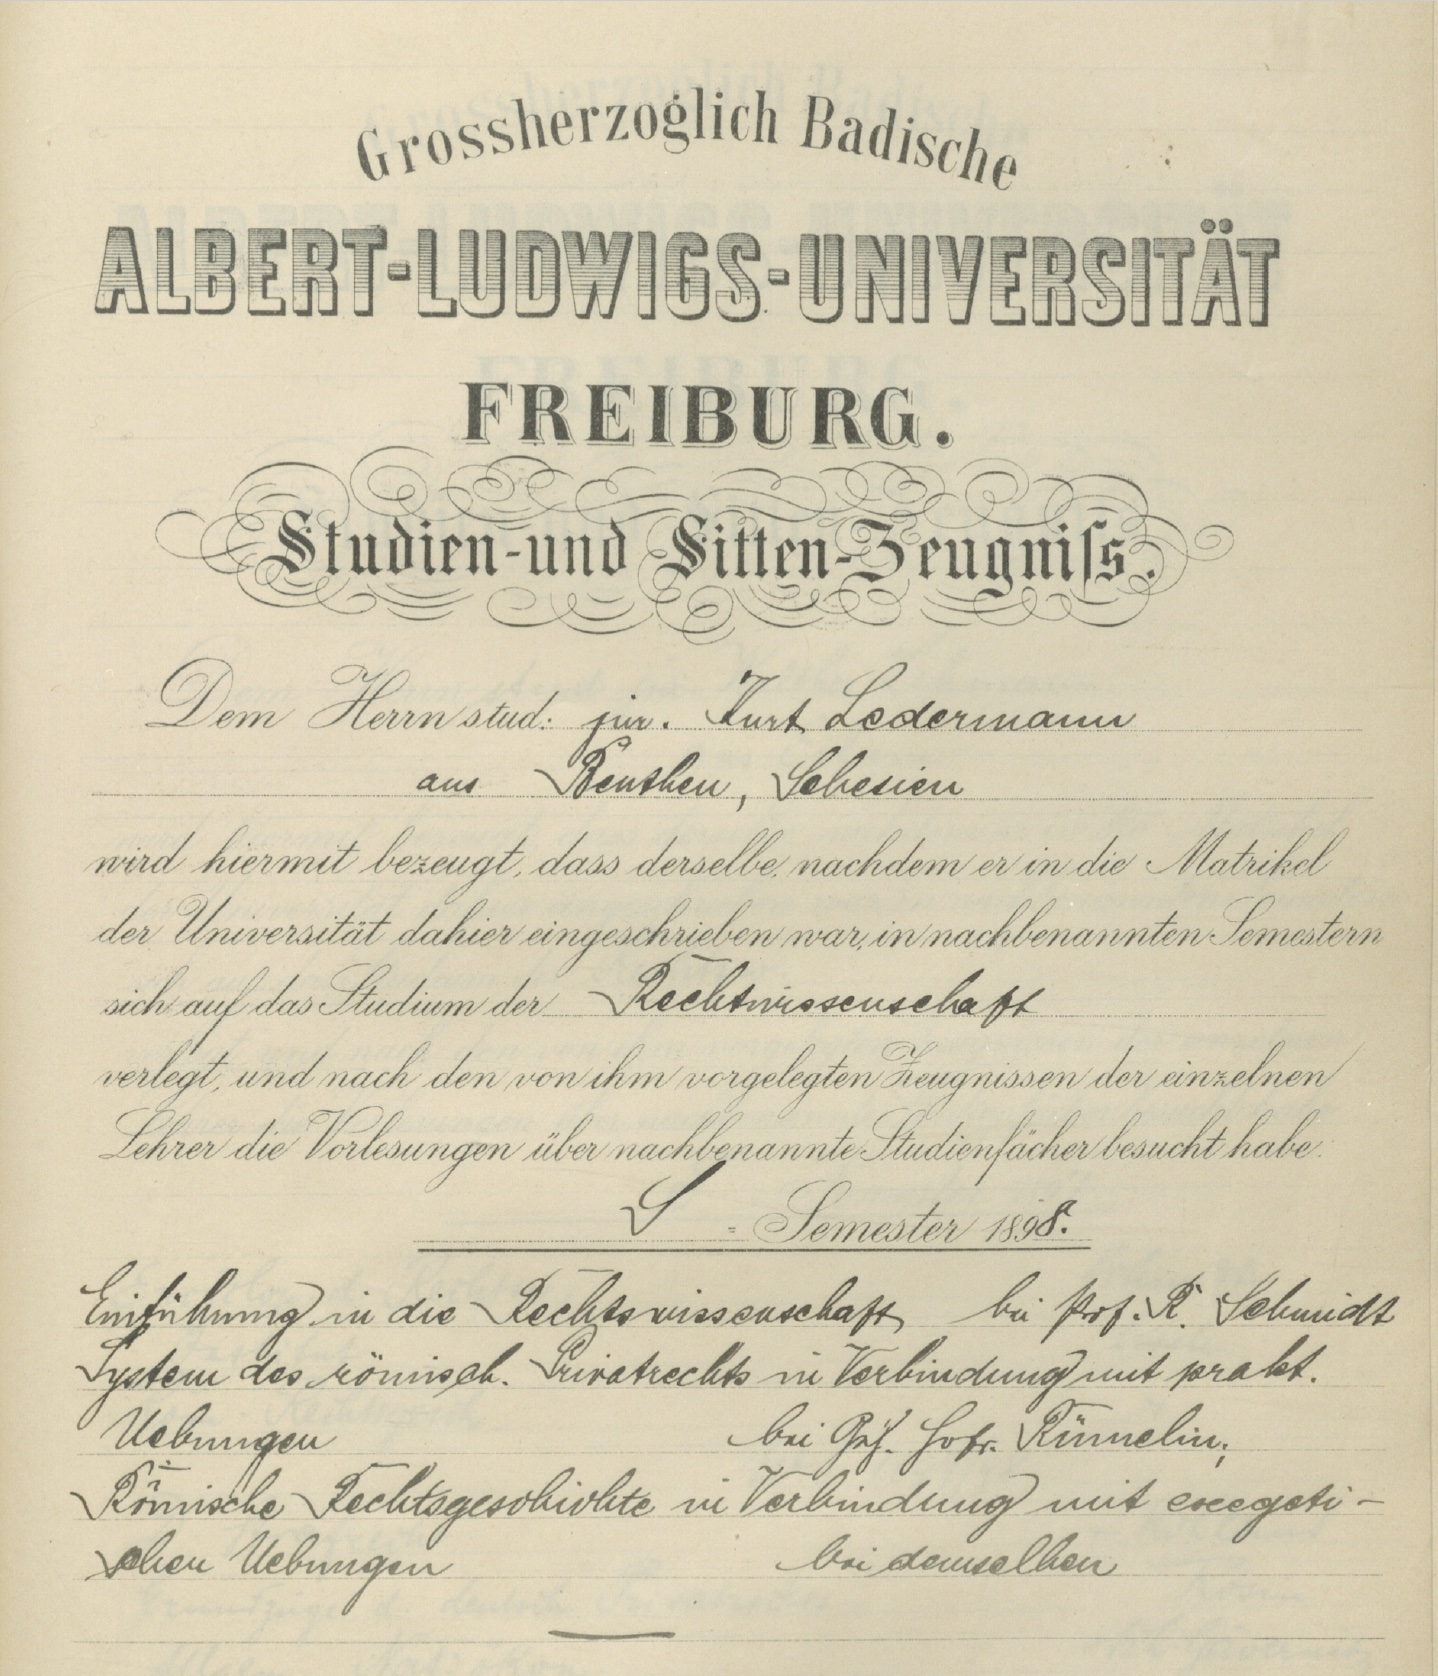 Grossherzoglich Badische
ALBERT-LUDWIGS-UNIVERSITÄT
FREIBURG.
Studien-und Sitten-Zeugniss.
Dem Herrn stud: jur. Kurt Ledermann
aus Beuthen, Schesien
wird hiermit bezeugt, dass derselbe, nachdem er in die Matrikel
der Universität dahier eingeschrieben war, in nachbenannten Semestern
sich auf das Studium der Rechtswissenschaft
verlegt, und nach den von ihm vorgelegten Zeugnissen der einzelnen
Lehrer die Vorlesungen über nachbenannte Studienfächer besucht habe.
S - Semester 1898.
Einführung in die Rechtswissenschaft bei Prof. R. Schmidt
System des römisch. Privatrechts in Verbindung mit prakt.
Uebungen bei Geh. Hofr. Rümelin;
Römische Rechtsgeschichte in Verbindung mit exegeti-
schen Uebungen bei demselben